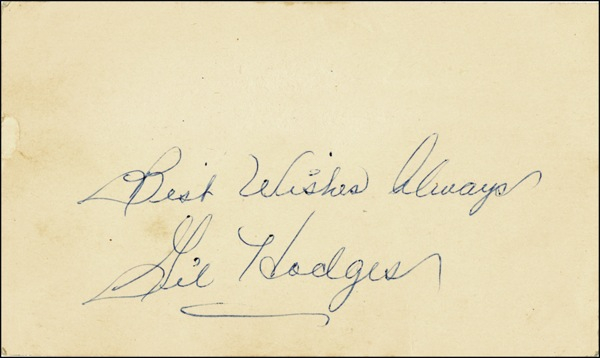 Best Wishes Always
Gil Hodges